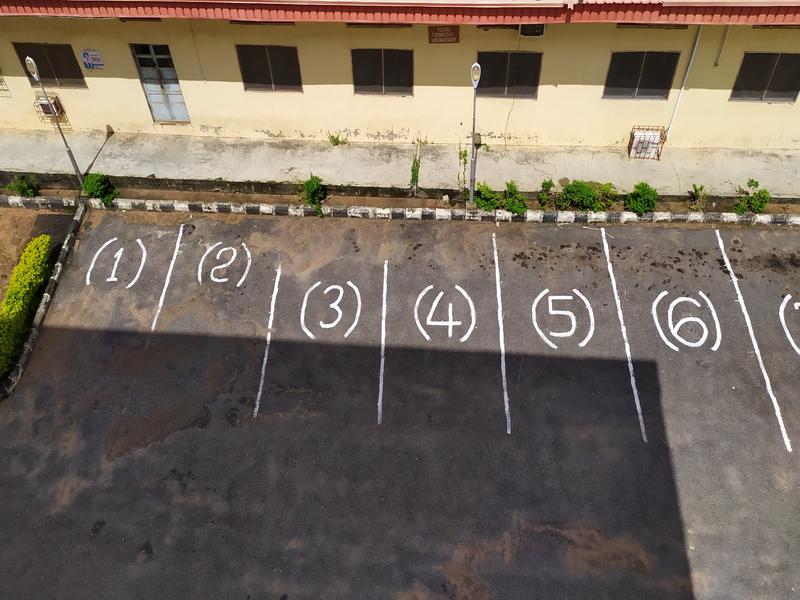 FOOD
CHEMISTRY
LABORATORY
(1) (2) (3) (4) (5) (6)